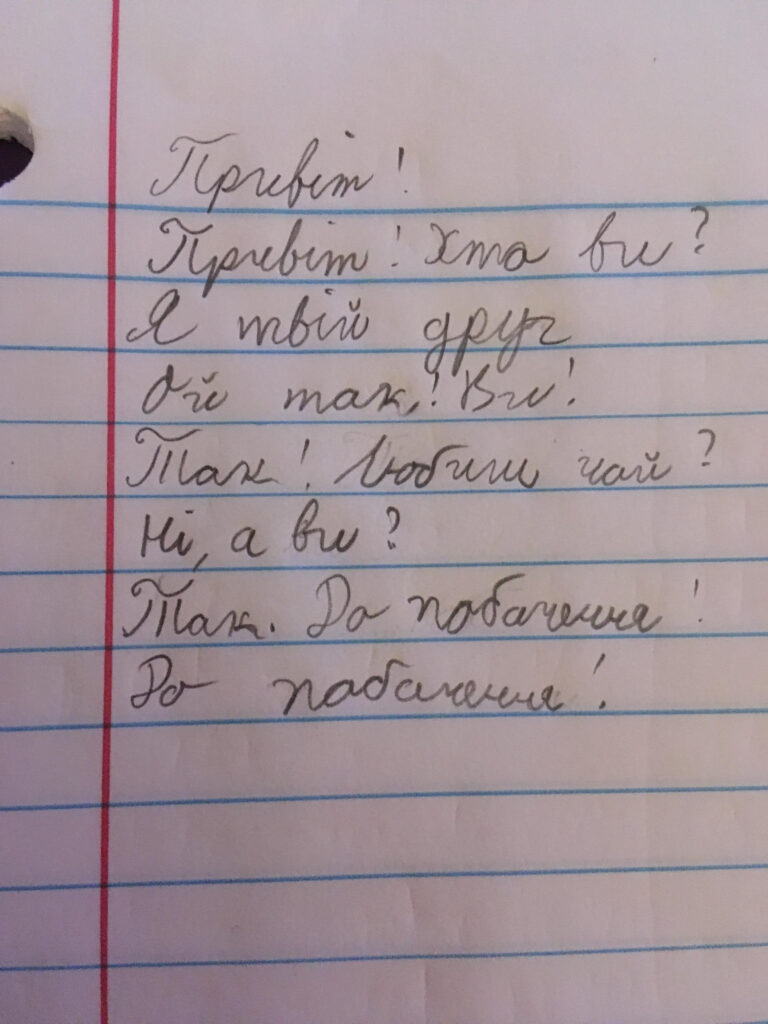 Привіт!
Привіт! Хто ви?
Я твій друг
Ой так! Ви!
Так! Любиш чай?
Ні, а ви?
Так. До побачення!
До побачення!